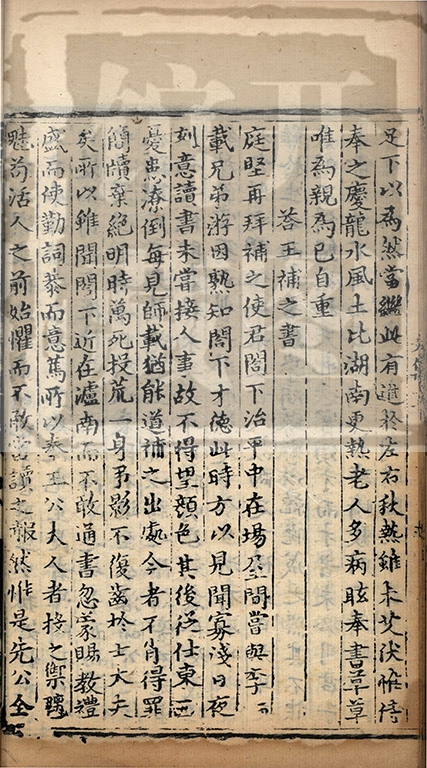 足下以為然當繼此有進於左右秋熱雖未艾伏惟侍
奉之慶龍水風土比湖南更熱老人多病眩奉書草草
唯為親為己自重
答王補之書
庭堅再拜補之使君閤下治平中在場屋間嘗與李
載兄弟游因熟知閤下才德此時方以見聞寡淺日夜
刻意讀書未嘗接人事故不得望顏色其後從仕東西
憂患潦倒每見師載猶能道補之出處今者不肖得罪
簡牘棄絕明時萬死投荒一身弔影不復齒於士大夫
矣所以雖聞閤下近在瀘南而不敢通書忽蒙賜教禮
盛而使勤詞恭而意篤所以奉王公大人者投之禦魑
魅苟活人之前始懼而不敢當讀之赧然惟是先公全